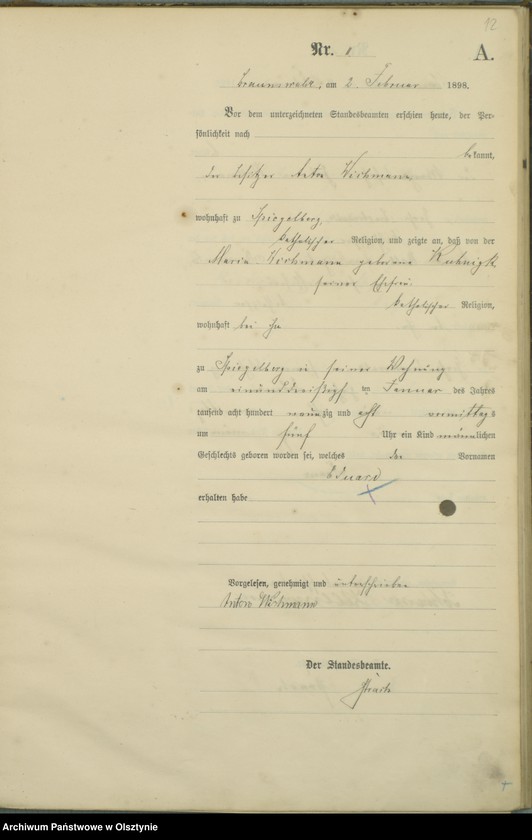 12
Nr. 8
A.
Braunswalde, am 2. Februar 1898.
Vor dem unterzeichneten Standesbeamten erschien heute, der Per-
sönlichkeit nach
bekannt,
der Besitzer Anton Wichmann
wohnhaft zu Spiegelberg,
katholischer Religion, und zeigte an, daß von der
Maria Wichmann geborene Kuhnigk
seiner Ehefrau
katholischer Religion,
wohnhaft bei ihm
zu Spiegelberg in seiner Wohnung
am einunddreißigsten ten Januar des Jahres
tausend acht hundert neunzig und acht vormittags
um fünf Uhr ein Kind männlichen
Geschlechts geboren worden sei, welches den Vornamen
Eduard
erhalten habe
Vorgelesen, genehmigt und unterschrieben
Anton Wichmann
Der Standesbeamte.
Archiwum Państwowe w Olsztynie